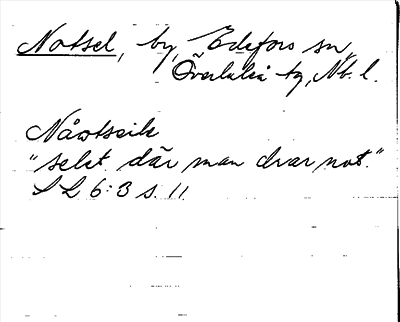 Notsel, by, Edefors sn,
Överluleå tg, Nb. l.
Nåʷtseik
"selet där man drar not."
SL 6:3 s. 11